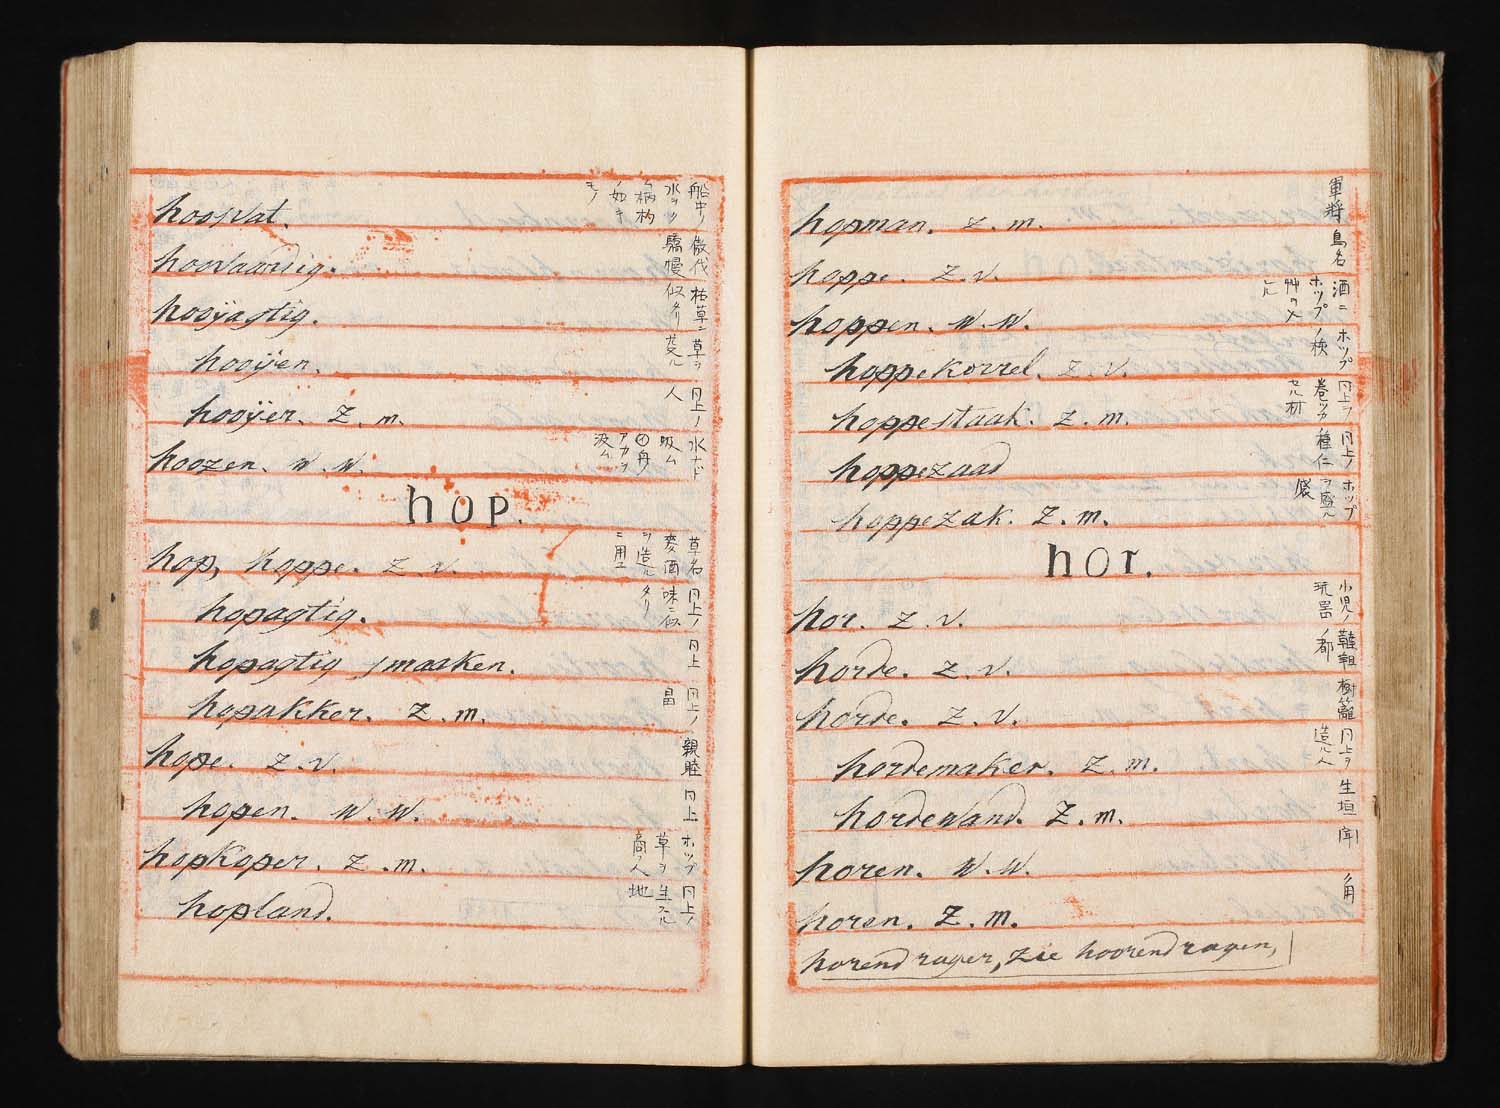 hoosvat. 船中ノ水ヲクム柄杓ノ如キモノ
hoovaardig. 傲伐 驕慢
hooÿagtig. 枯草ニ似タリ
hooÿen. 草ヲ
hooÿer. z. m. 仝上ノ人
hoozen. w. w. 水ナド吸ム ㋑舟ノアカヲ汲ム
hop.
hop, hoppe. z. v. 草名 麥酒ヲ造ルニ用ユ
hopagtig. 仝上ノ味ニ似タリ
hopagtig smaaken. 仝上
hopakker. z. m. 仝上ノ畠
hope. z. v. 親睦
hopen. w. w. 仝上
hopkoper. z. m. ホップ草ヲ商フ人
hopland. 仝上ノ生スル地
hopman. z. m. 軍将
hoppe. z. v. 鳥名
hoppen. w. w. 酒ニホップノ艸ヲ入ル
hoppekorrel. z. v. ホップノ
hoppestaak. z. m. 仝上ヲ巻ツカセル材
hoppezaad 仝上ノ種仁
hoppezak. z. m. ホップヲ盛ル袋
hor.
hor. z. v. 小児ノ玩器
horde. z. v. 韃靼ノ郡
horde. z. v. 樹籬
hordemaker. z. m. 仝上ヲ造ル人
hordewand. z. m. 生垣
horen. w. w.
horen. z. m. 角
horendrager, zie hoorendragen,